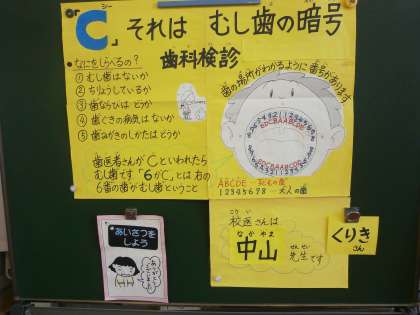 シー
「C」それは むし歯の暗号
歯科検診
•なにをしらべるの？
① むし歯はないか
② ちりょうしているか
③ 歯ならびは どうか
④ 歯ぐきの病気は ないか
⑤ 歯みがきのしかたは どうか
歯医者さんが Cといわれたら
むし歯です "6がC"とは 右の
6番の歯が むし歯ということ
歯の場所がわかるように 番号があります
ABCDE… 子どもの歯
12345678… 大人の歯
あいさつを
しよう
校医さんは
なかやま
中山
せんせい
先生です
くりき
さん